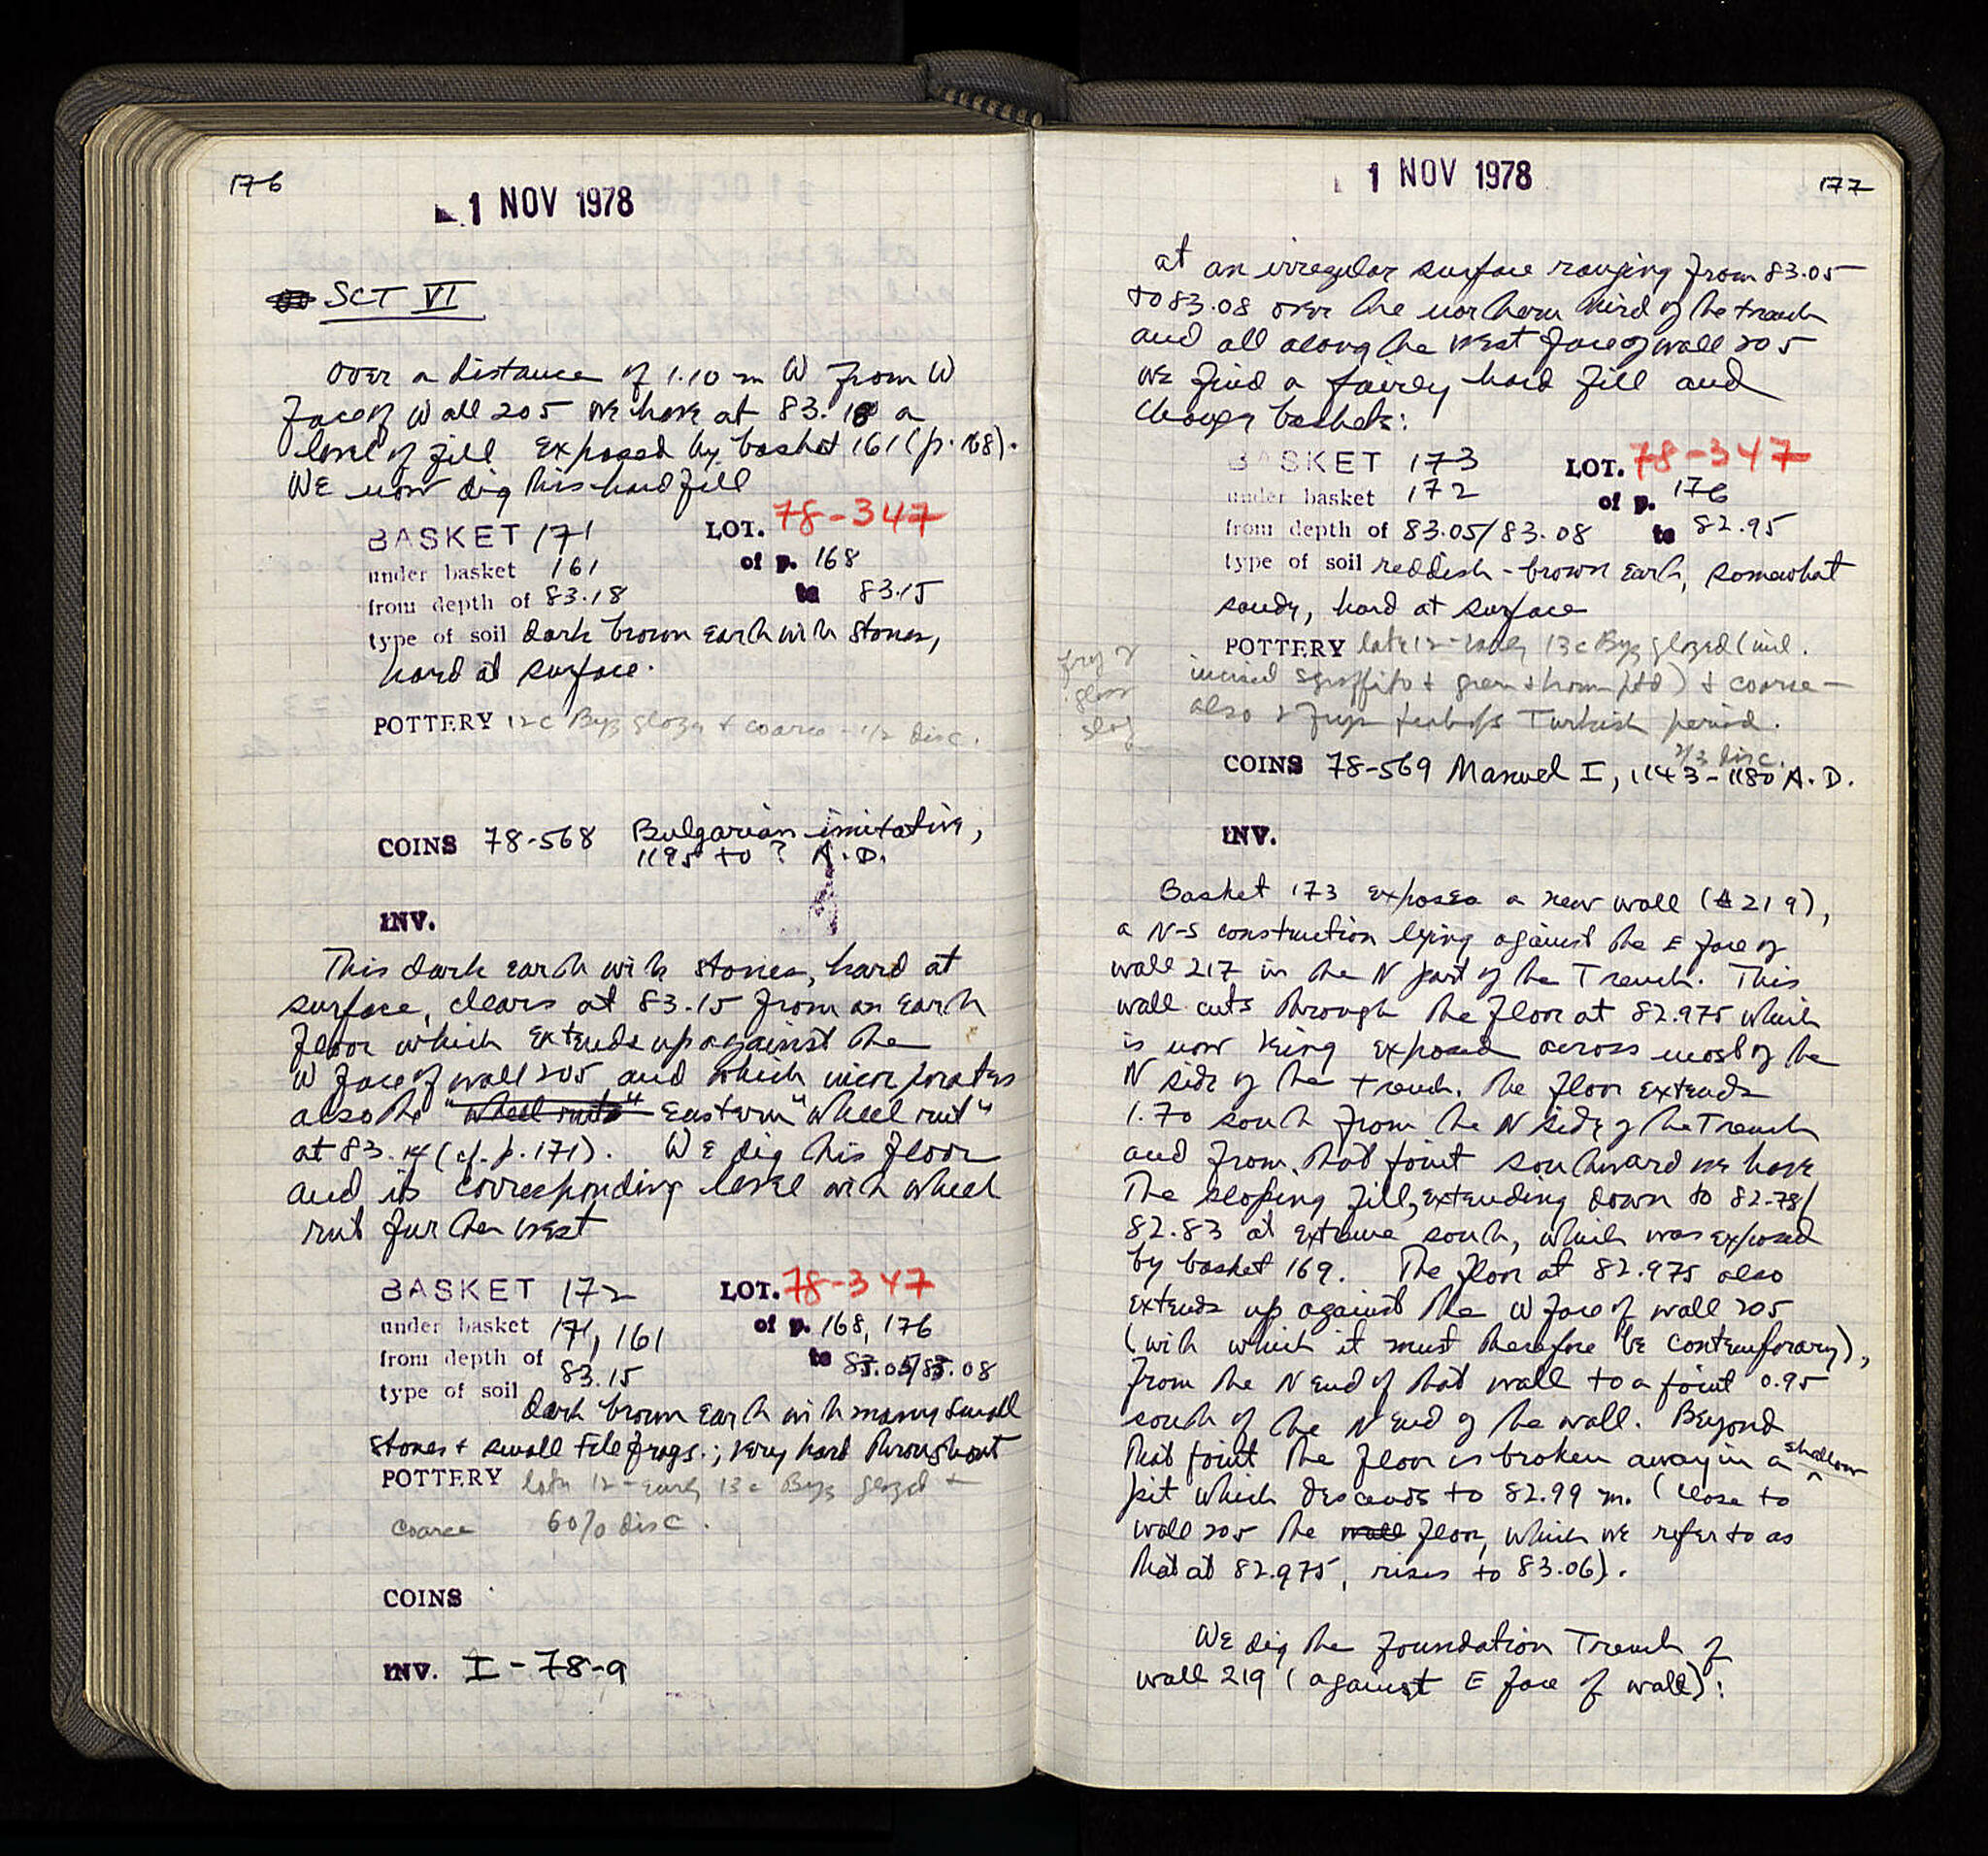 176
1 NOV 1978
SCT VI
Over a distance of 1.10 m W from W
face of Wall 205 we have at 83.18 a
level of fill exposed by basket 161 (p. 168).
We now dig this hard fill
BASKET 171 LOT. 78-347
under basket 161 of p. 168
from depth of 83.18 to 83.15
type of soil dark brown earth with stones,
hard at surface.
POTTERY 12c Byz glazed + coarse - 1/2 disc.
COINS 78-568 Bulgarian imitative,
1195 to ? A.D.
INV.
This dark earth with stones, hard at
surface, clears at 83.15 from an earth
floor which extends up against the
W face of wall 205 and which incorporates
also the "wheel ruts" Eastern "wheel rut"
at 83.14 (cf. p. 171). We dig this floor
and its corresponding level with wheel
rut further west
BASKET 172 LOT. 78-347
under basket 171, 161 of p. 168, 176
from depth of 83.15 to 83.05/83.08
type of soil dark brown earth with many small
stones + small tile frags.; very hard throughout
POTTERY late 12 - early 13c Byz glazed +
coarse 60% disc.
COINS
INV. I-78-9
1 NOV 1978
177
at an irregular surface ranging from 83.05
to 83.08 over the northern third of the trench
and all along the west face of wall 205
we find a fairly hard fill and
change baskets:
BASKET 173 LOT. 78-347
under basket 172 of p. 176
from depth of 83.05/83.08 to 82.95
type of soil reddish-brown earth, somewhat
sandy, hard at surface
POTTERY late 12 - early 13c Byz glazed (incl.
incised sgraffito + green + brown ptd) + coarse -
also 2 frgs perhaps Turkish period.
2/3 disc.
frag of
glass
slag
COINS 78-569 Manuel I, 1143-1180 A.D.
INV.
Basket 173 exposes a new wall (219),
a N-S construction lying against the E face of
wall 217 in the N part of the Trench. This
wall cuts through the floor at 82.975 which
is now being exposed across most of the
N side of the trench. The floor extends
1.70 south from the N side of the Trench
and from that point southward we have
the sloping fill, extending down to 82.78/
82.83 at extreme south, which was exposed
by basket 169. The floor at 82.975 also
extends up against the W face of wall 205
(with which it must therefore be contemporary),
from the N end of that wall to a point 0.95
south of the N end of the wall. Beyond
that point the floor is broken away in a shallow
pit which descends to 82.99 m. (Close to
wall 205 the wall floor, which we refer to as
that at 82.975, rises to 83.06).
We dig the foundation Trench of
wall 219 (against E face of wall):